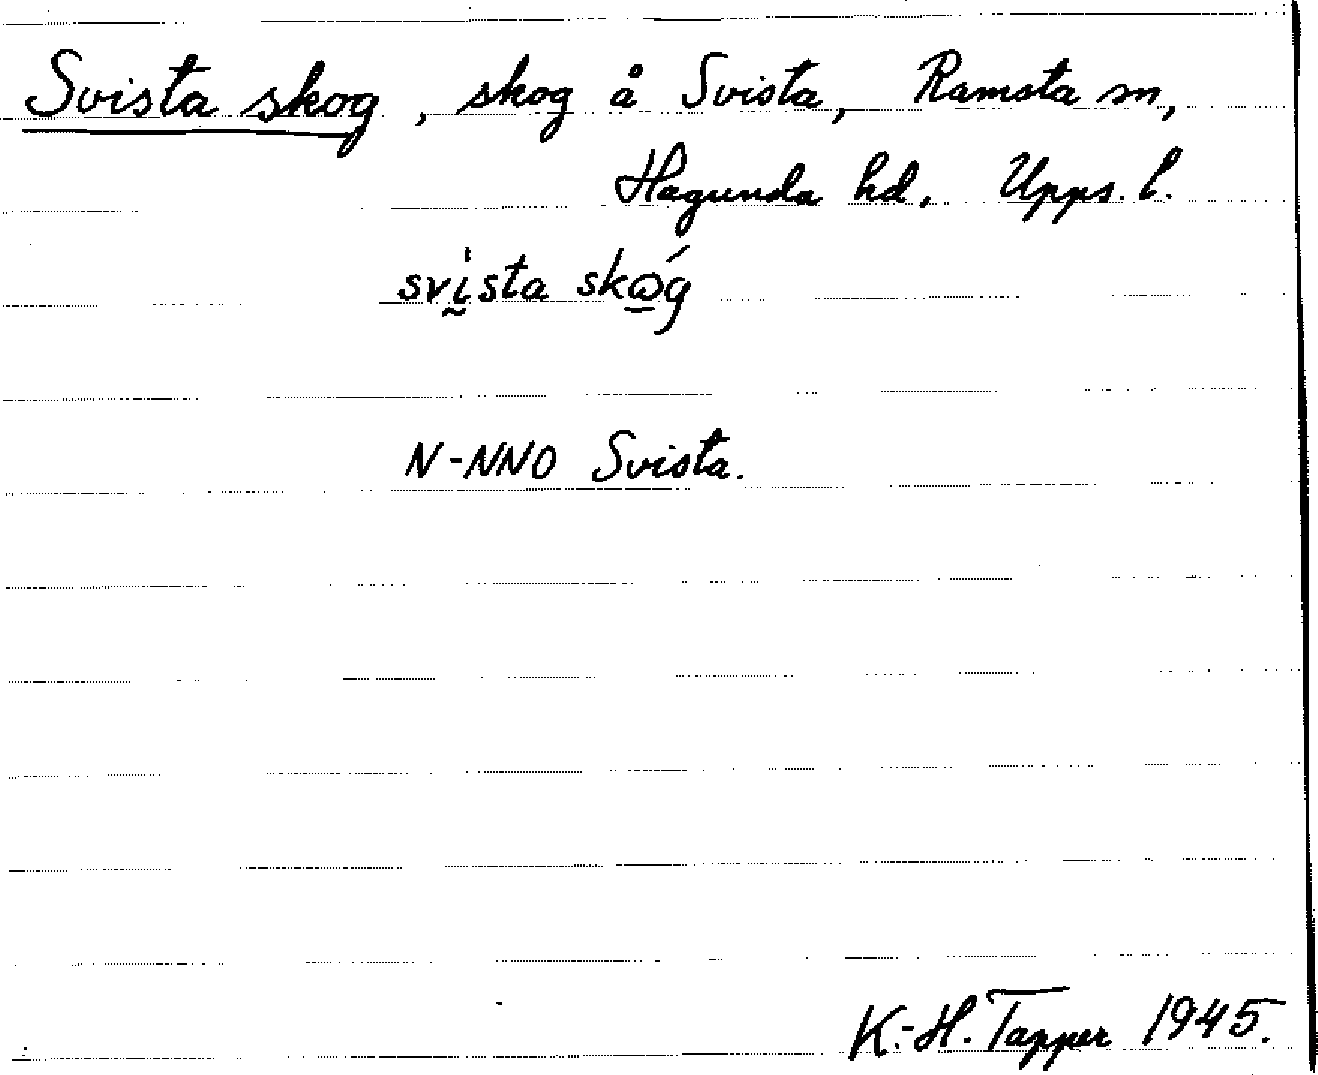 Svista skog, skog å Svista, Ramsta sn,
Hagunda hd, Upps. l.
svḭ̍sta skώ̲g
N-NNO Svista.
K.-H. Tapper 1945.